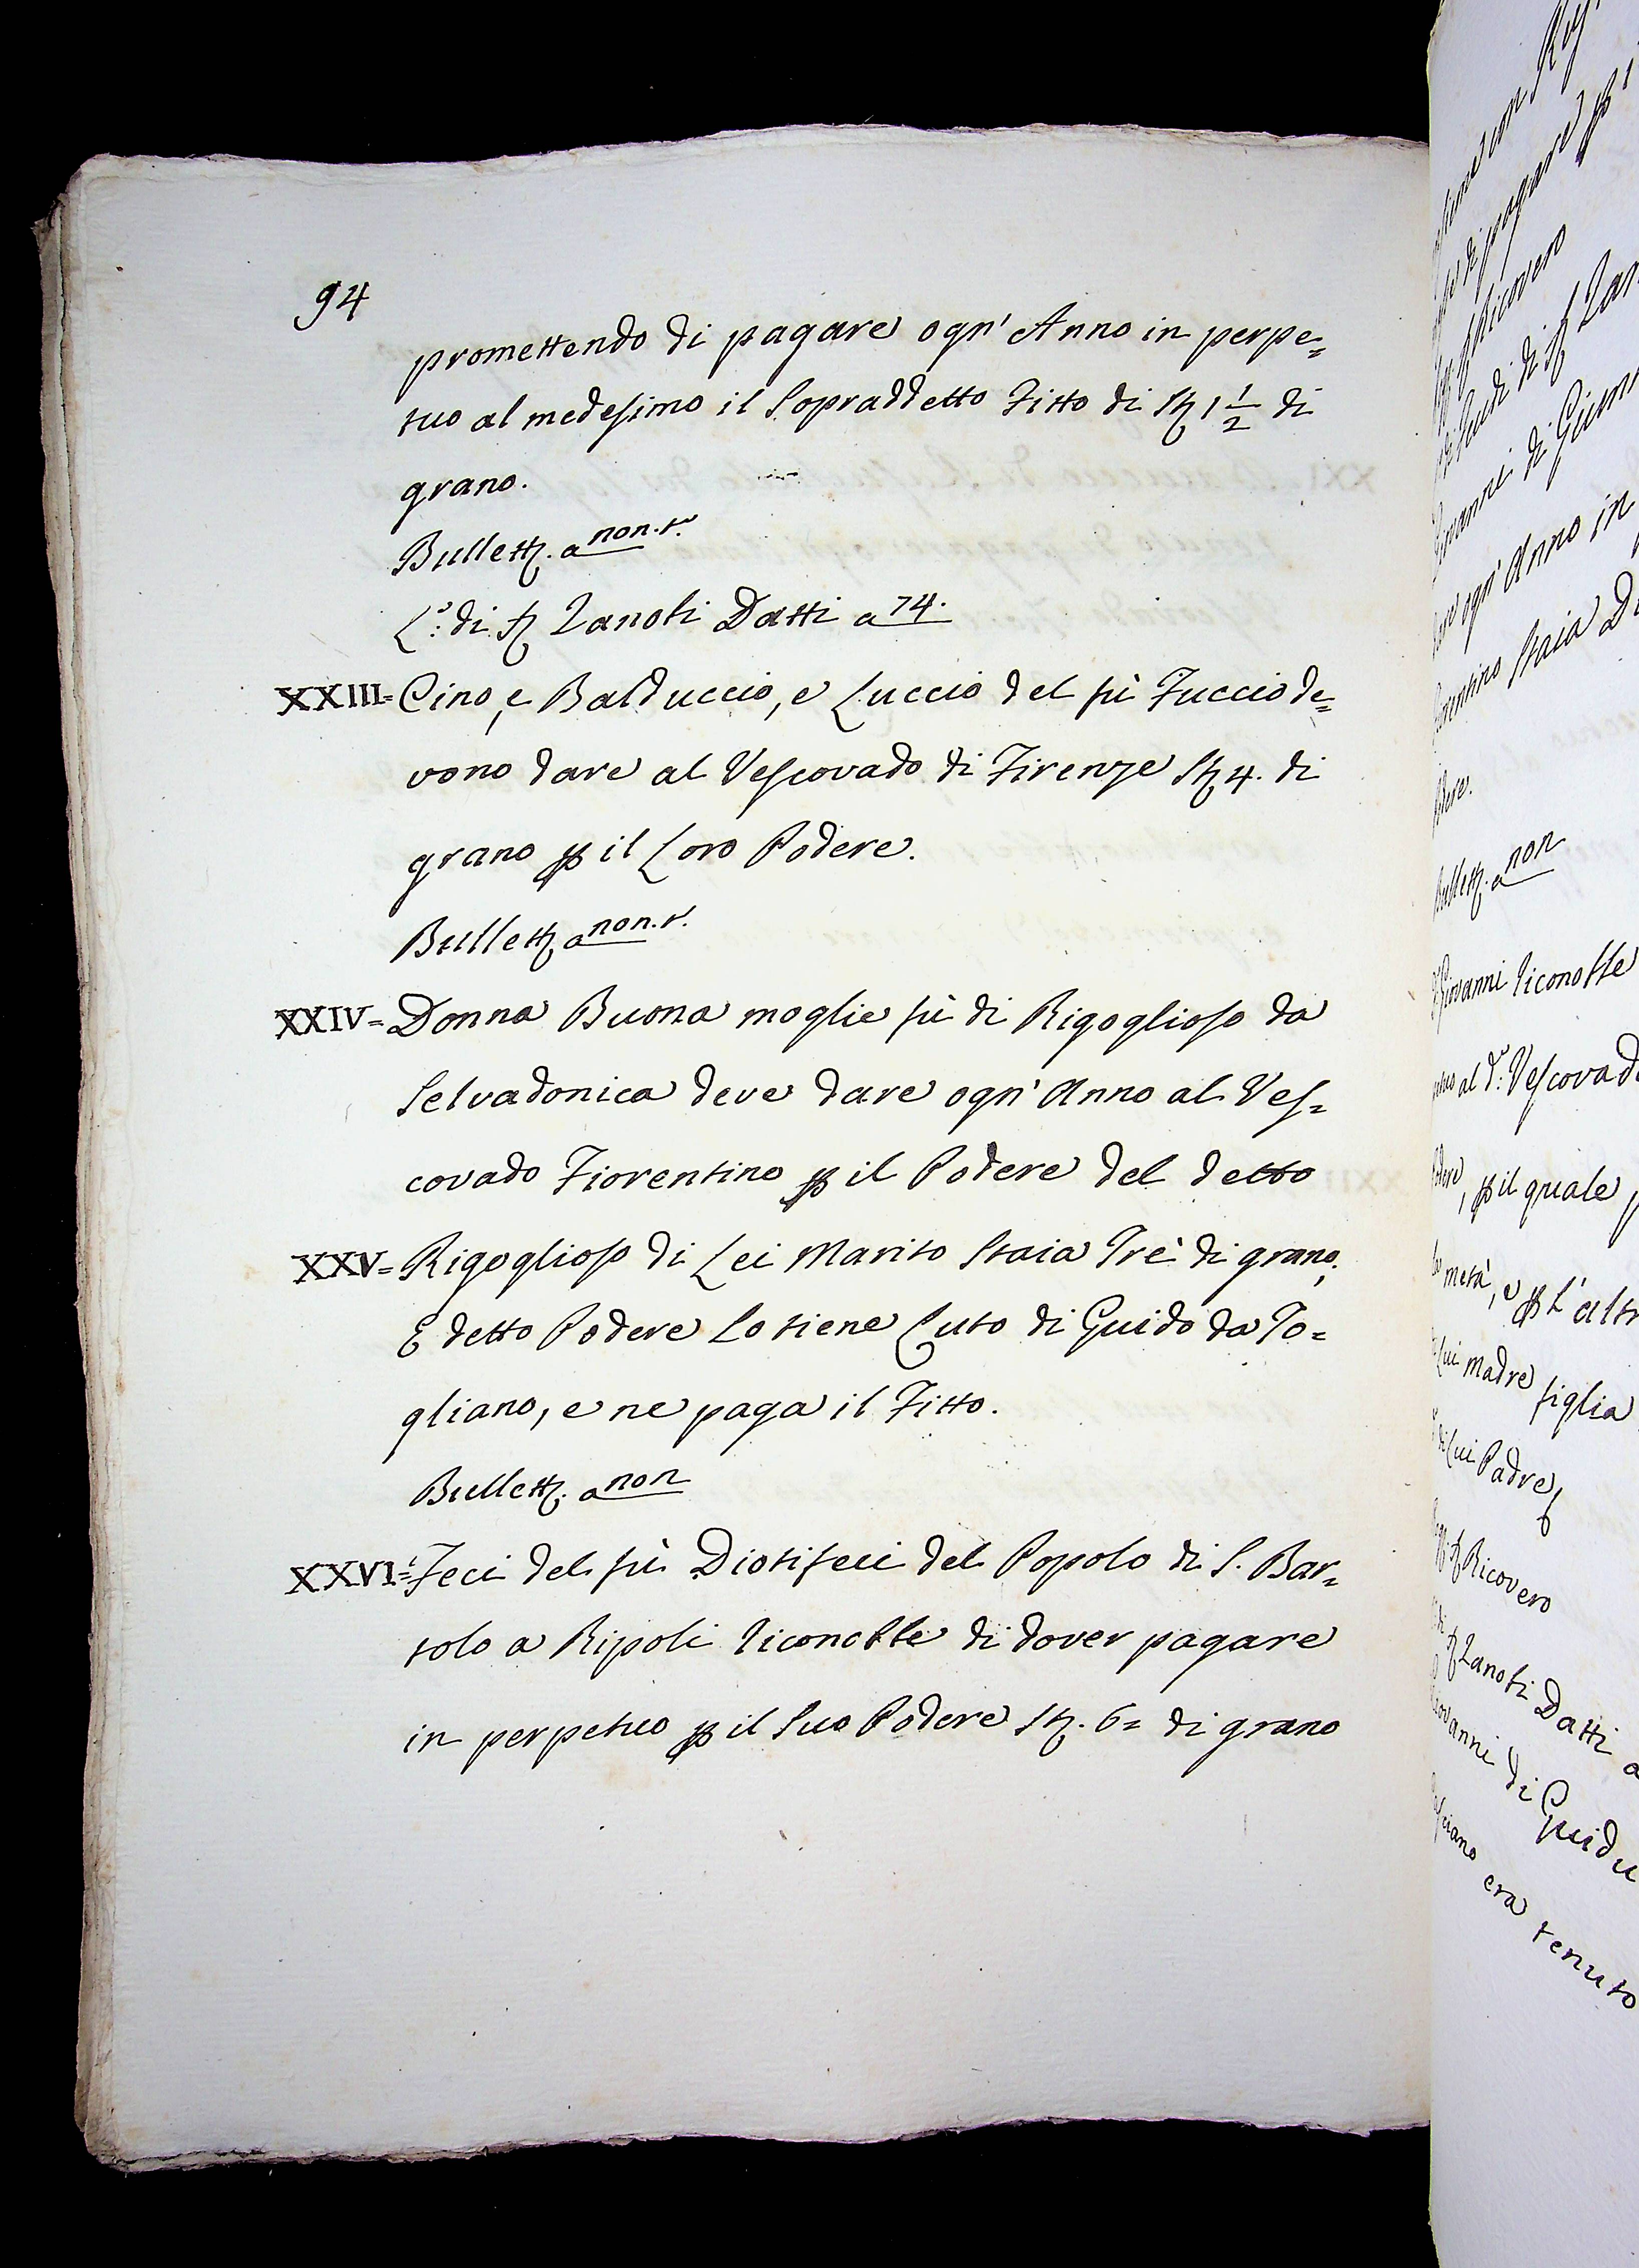 94
promettendo di pagare ogn' Anno in perpe=
tuo al medesimo il Sopraddetto Fitto di St. 1 1/2 di
grano.
Bullett. a non. v.
L.º di S. Zanobi Datti a 74.
XXIII= Cino, e Balduccio, e Luccio del fù Fuccio de=
vono dare al Vescovado di Firenze St. 4. di
grano p il Loro Podere.
Bullett. a non. v.
XXIV= Donna Buona moglie fù di Rigoglioso da
Selvadonica deve dare ogn' Anno al Ves=
covado Fiorentino p il Podere del detto
XXV= Rigoglioso di Lei Marito Staia Trè di grano;
E detto Podere Lo tiene Cuto di Guido da To=
gliano, e ne paga il Fitto.
Bullett. a non
XXVI= Feci del fù Diotifeci del Popolo di S. Bar=
tolo a Ripoli riconobbe di dover pagare
in perpetuo p il Suo Podere St. 6= di grano
di pagare p
Ricovero
ogn' Anno in
Staia
Bullett. a non
Giovanni riconobbe
al d.º Vescovad
p il quale
metà, e p L' altr
Lui madre figlia
di Lui Padre
Ricovero
Zanobi Datti a
di Guidu
era tenuto